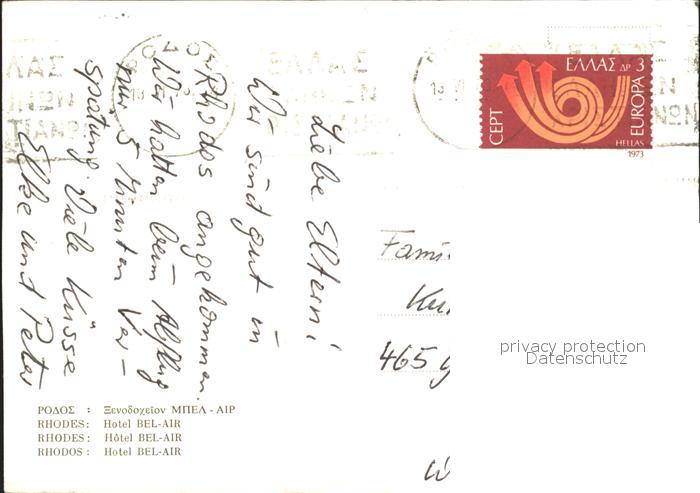 Liebe Eltern!
Wir sind gut in
Rhodos angekommen.
Wir hatten beim Abflug
nur 5 Minuten Ver-
spätung. Viele Küsse
Elke und Peter
ΕΛΛΑΣ ΔΡ 3
CEPT
EUROPA
HELLAS
1973
Fami
Ku
465 g
W
privacy protection
Datenschutz
ΡΟΔΟΣ : Ξενοδοχεῖον ΜΠΕΛ - ΑΙΡ
RHODES: Hotel BEL-AIR
RHODES: Hôtel BEL-AIR
RHODOS: Hotel BEL-AIR